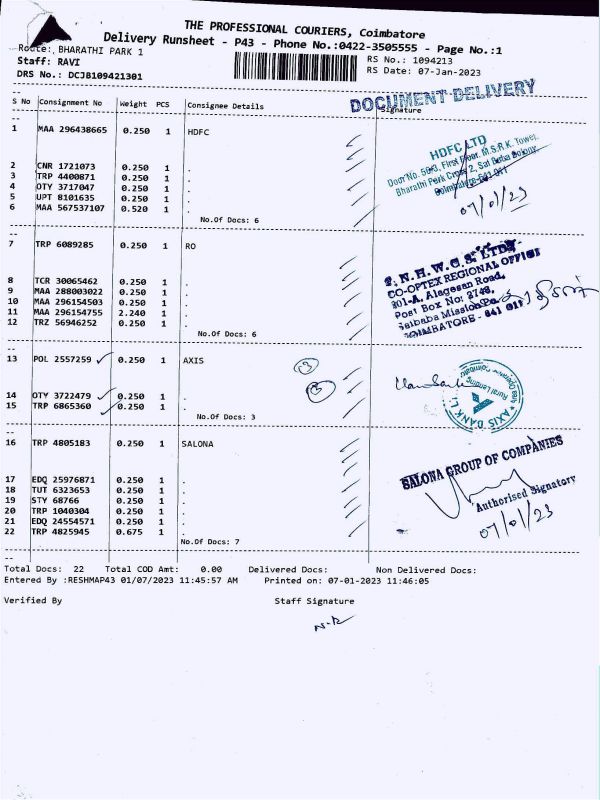 THE PROFESSIONAL COURIERS, Coimbatore
Delivery Runsheet - P43 - Phone No.:0422-3505555 - Page No.:1
Route: BHARATHI PARK 1
Staff: RAVI
DRS No.: DCJB109421301
RS No.: 1094213
RS Date: 07-Jan-2023
DOCUMENT DELIVERY
S No Consignment No Weight PCS Consignee Details Signature
1 MAA 296438665 0.250 1 HDFC
2 CNR 1721073 0.250 1 .
3 TRP 4400871 0.250 1 .
4 OTY 3717047 0.250 1 .
5 UPT 8101635 0.250 1 .
6 MAA 567537107 0.520 1 .
No.Of Docs: 6
HDFC LTD
Door No. 50/3, First Floor, M.S.R.K. Tower,
Bharathi Park Cross 2, Sai Baba Colony,
Coimbatore-641 011
07/01/23
7 TRP 6089285 0.250 1 RO
8 TCR 30065462 0.250 1 .
9 MAA 288003022 0.250 1 .
10 MAA 296154503 0.250 1 .
11 MAA 296154755 2.240 1 .
12 TRZ 56946252 0.250 1 .
No.Of Docs: 6
T.N.H.W.C.S. LTD.
CO-OPTEX REGIONAL OFFICE
201-A, Alagesan Road,
Post Box No: 3748,
Saibaba Mission Po.
COIMBATORE - 641 011
13 POL 2557259 0.250 1 AXIS
3
14 OTY 3722479 0.250 1 .
3
15 TRP 6865360 0.250 1 .
No.Of Docs: 3
AXIS BANK L
Rural Lending
16 TRP 4805183 0.250 1 SALONA
17 EDQ 25976871 0.250 1 .
18 TUT 6323653 0.250 1 .
19 STY 68766 0.250 1 .
20 TRP 1040304 0.250 1 .
21 EDQ 24554571 0.250 1 .
22 TRP 4825945 0.675 1 .
No.Of Docs: 7
SALONA GROUP OF COMPANIES
Authorised Signatory
07/01/23
Total Docs: 22 Total COD Amt: 0.00 Delivered Docs: Non Delivered Docs:
Entered By :RESHMAP43 01/07/2023 11:45:57 AM Printed on: 07-01-2023 11:46:05
Verified By Staff Signature